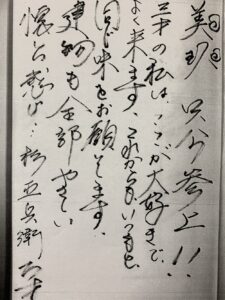 美 只今参上!!
三才の私は、ここが大好きで、
よく来ます、これからもいつも
同じ味をお願いします、
建物も全部やさしい
杉五兵衛